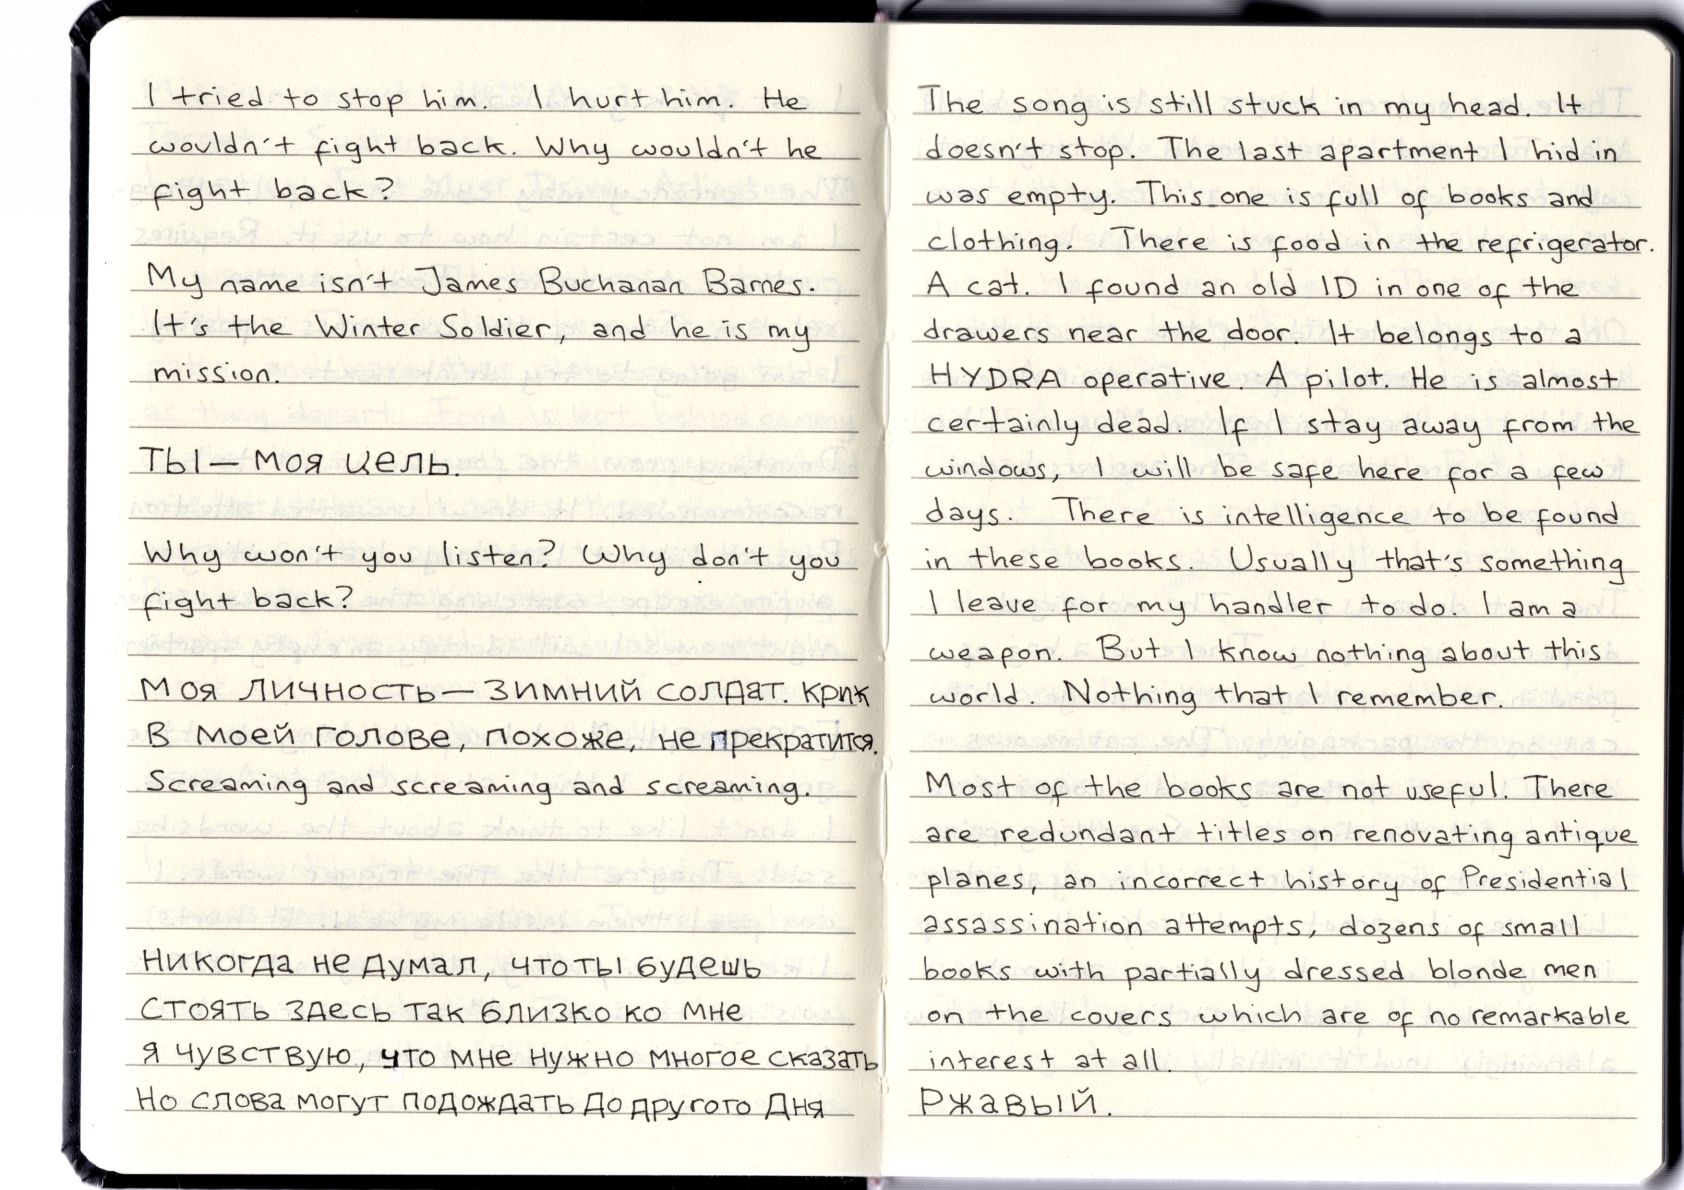 I tried to stop him. I hurt him. He
wouldn't fight back. Why wouldn't he
fight back?
My name isn't James Buchanan Barnes.
It's the Winter Soldier, and he is my
mission.
Ты — моя цель.
Why won't you listen? Why don't you
fight back?
Моя личность — Зимний солдат. Крик
в моей голове, похоже, не прекратится.
Screaming and screaming and screaming.
Никогда не думал, что ты будешь
стоять здесь так близко ко мне
я чувствую, что мне нужно многое сказать
Но слова могут подождать до другого дня
The song is still stuck in my head. It
doesn't stop. The last apartment I hid in
was empty. This one is full of books and
clothing. There is food in the refrigerator.
A cat. I found an old ID in one of the
drawers near the door. It belongs to a
HYDRA operative. A pilot. He is almost
certainly dead. If I stay away from the
windows, I will be safe here for a few
days. There is intelligence to be found
in these books. Usually that's something
I leave for my handler to do. I am a
weapon. But I know nothing about this
world. Nothing that I remember.
Most of the books are not useful. There
are redundant titles on renovating antique
planes, an incorrect history of Presidential
assassination attempts, dozens of small
books with partially dressed blonde men
on the covers which are of no remarkable
interest at all.
Ржавый.